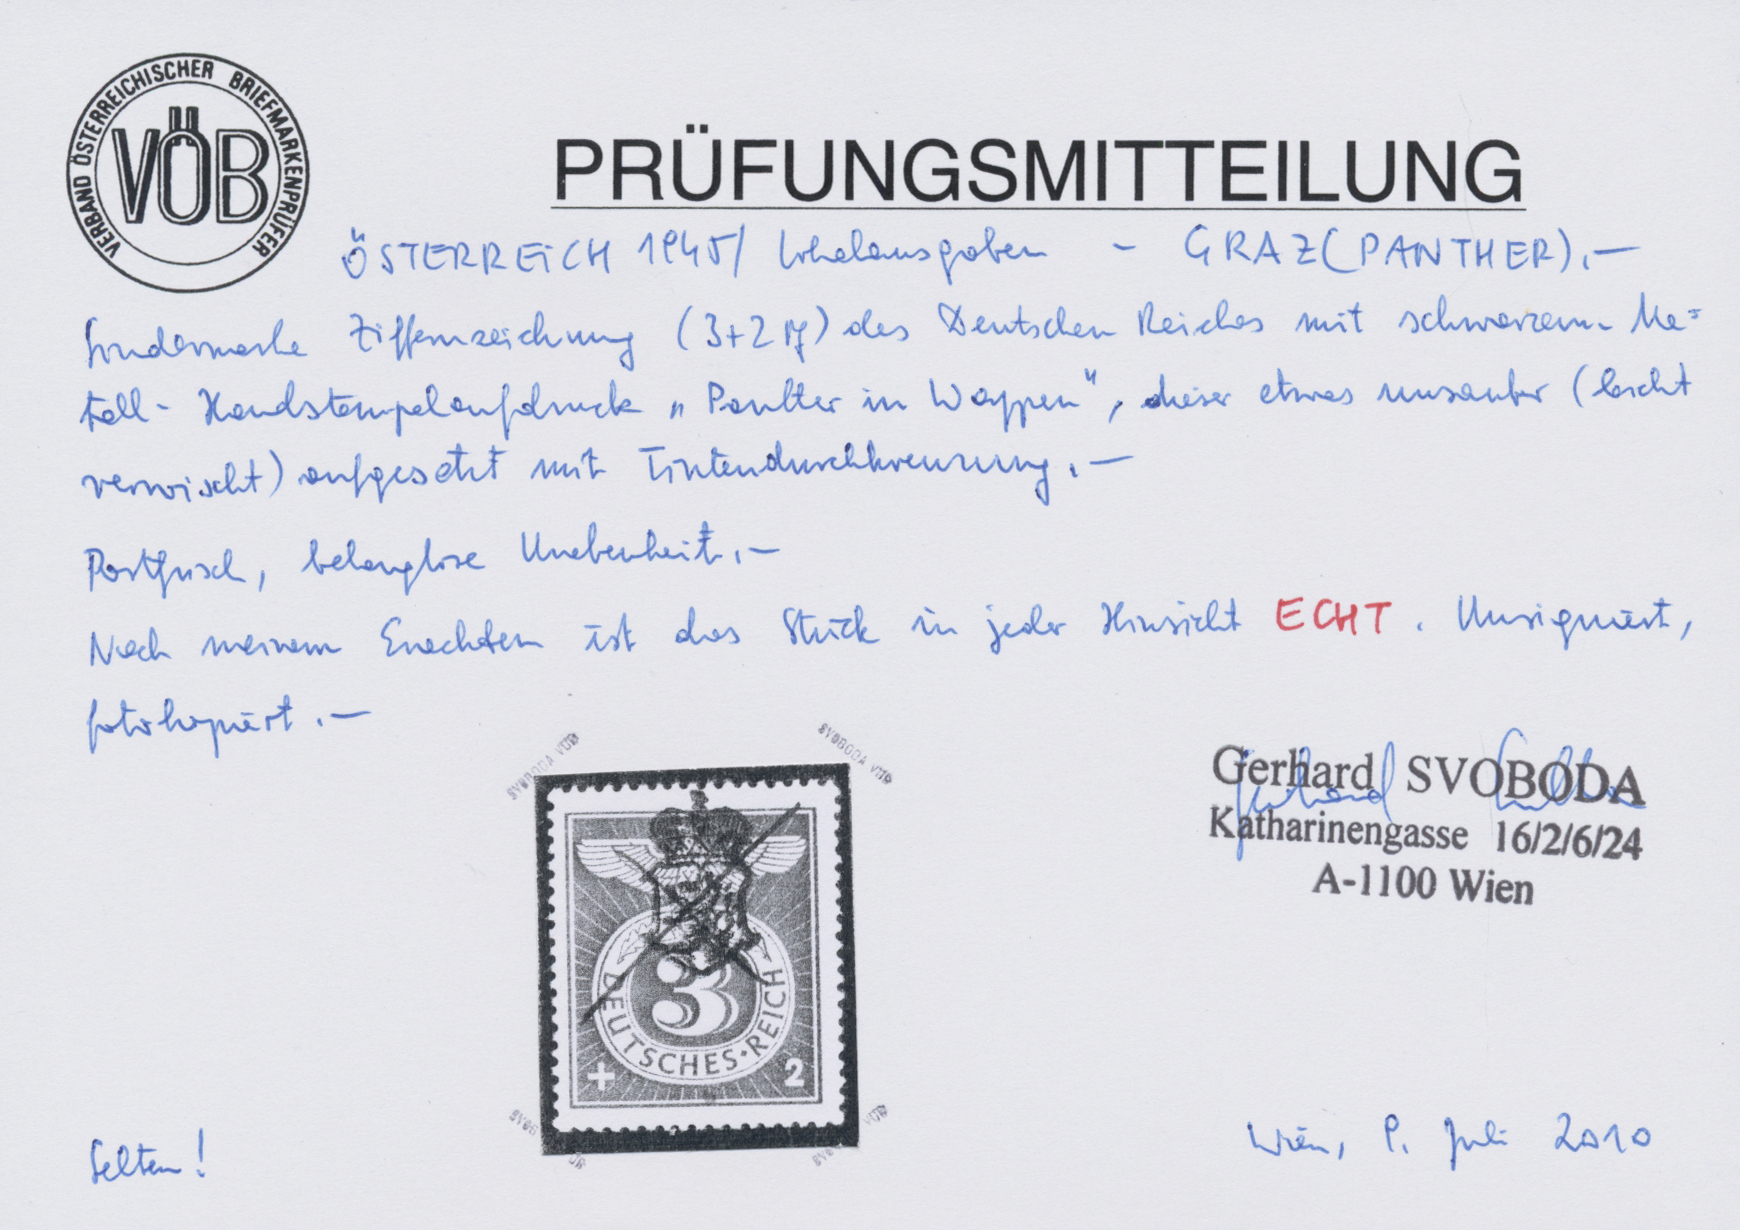 VERBAND ÖSTERREICHISCHER BRIEFMARKENPRÜFER
VÖB
PRÜFUNGSMITTEILUNG
ÖSTERREICH 1945/ Lokalausgaben - GRAZ (PANTHER).-
Sondermarke Ziffernzeichnung (3+2 Pf) des Deutschen Reiches mit schwarzem Me=
tall- Handstempelaufdruck „Panther in Wappen“, dieser etwas unsauber (leicht
verwischt) aufgesetzt mit Tintendurchkreuzung.-
Postfrisch, belanglose Unebenheit.-
Nach meinem Erachten ist das Stück in jeder Hinsicht ECHT. Unsigniert,
fotokopiert.-
SVOBODA VÖB
SVOBODA VÖB
3
DEUTSCHES REICH
+ 2
Gerhard SVOBODA
Katharinengasse 16/2/6/24
A-1100 Wien
Selten!
Wien, Juli 2010